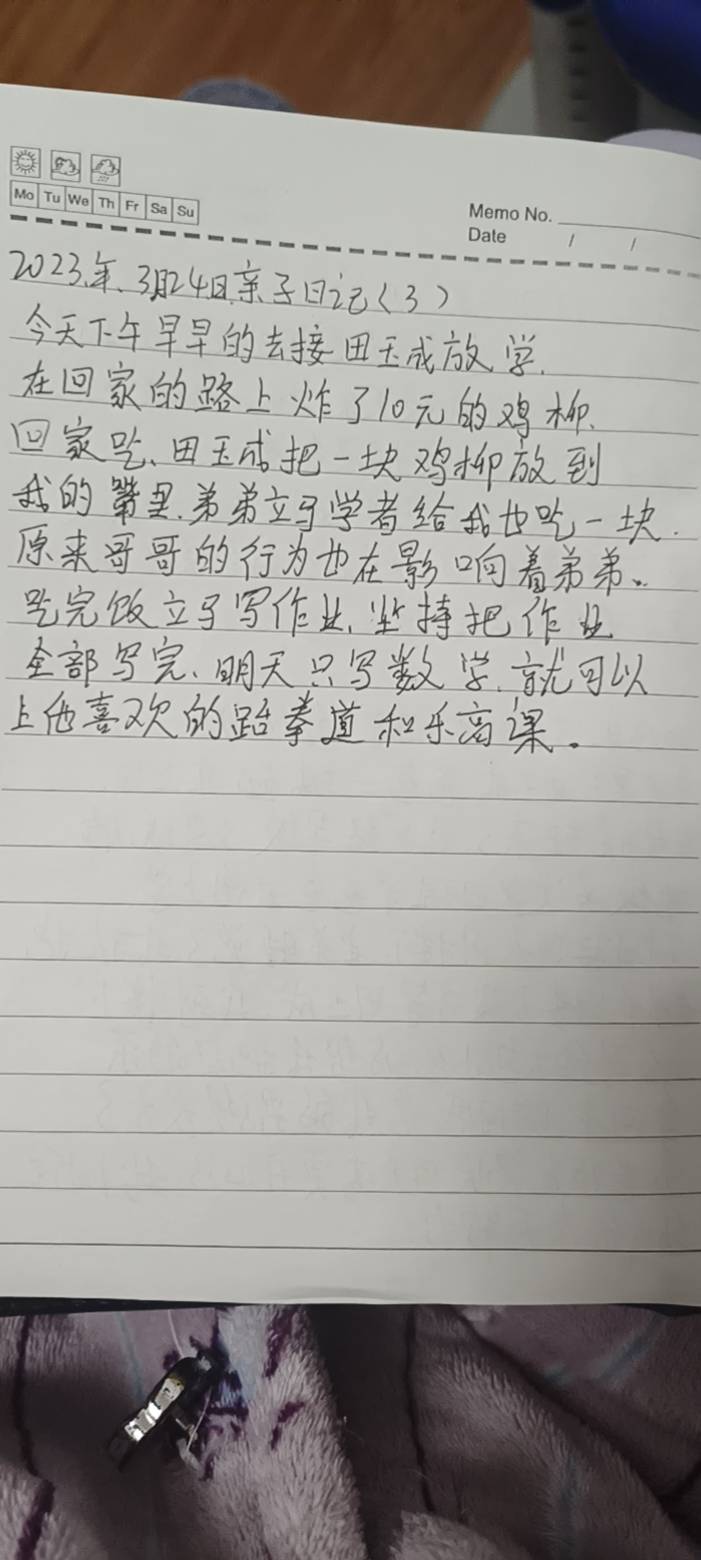 Mo Tu We Th Fr Sa Su
Memo No.
Date / /
2023.年.3月24日亲子日记(3)
今天下午早早的去接田玉成放学.
在回家的路上炸了10元的鸡柳.
回家吃、田玉成把一块鸡柳放到
我的嘴里.弟弟立马学着给我也吃一块.
原来哥哥的行为也在影响着弟弟。
吃完饭立马写作业、坚持把作业
全部写完、明天只写数学.就可以
上他喜欢的跆拳道和乐高课。